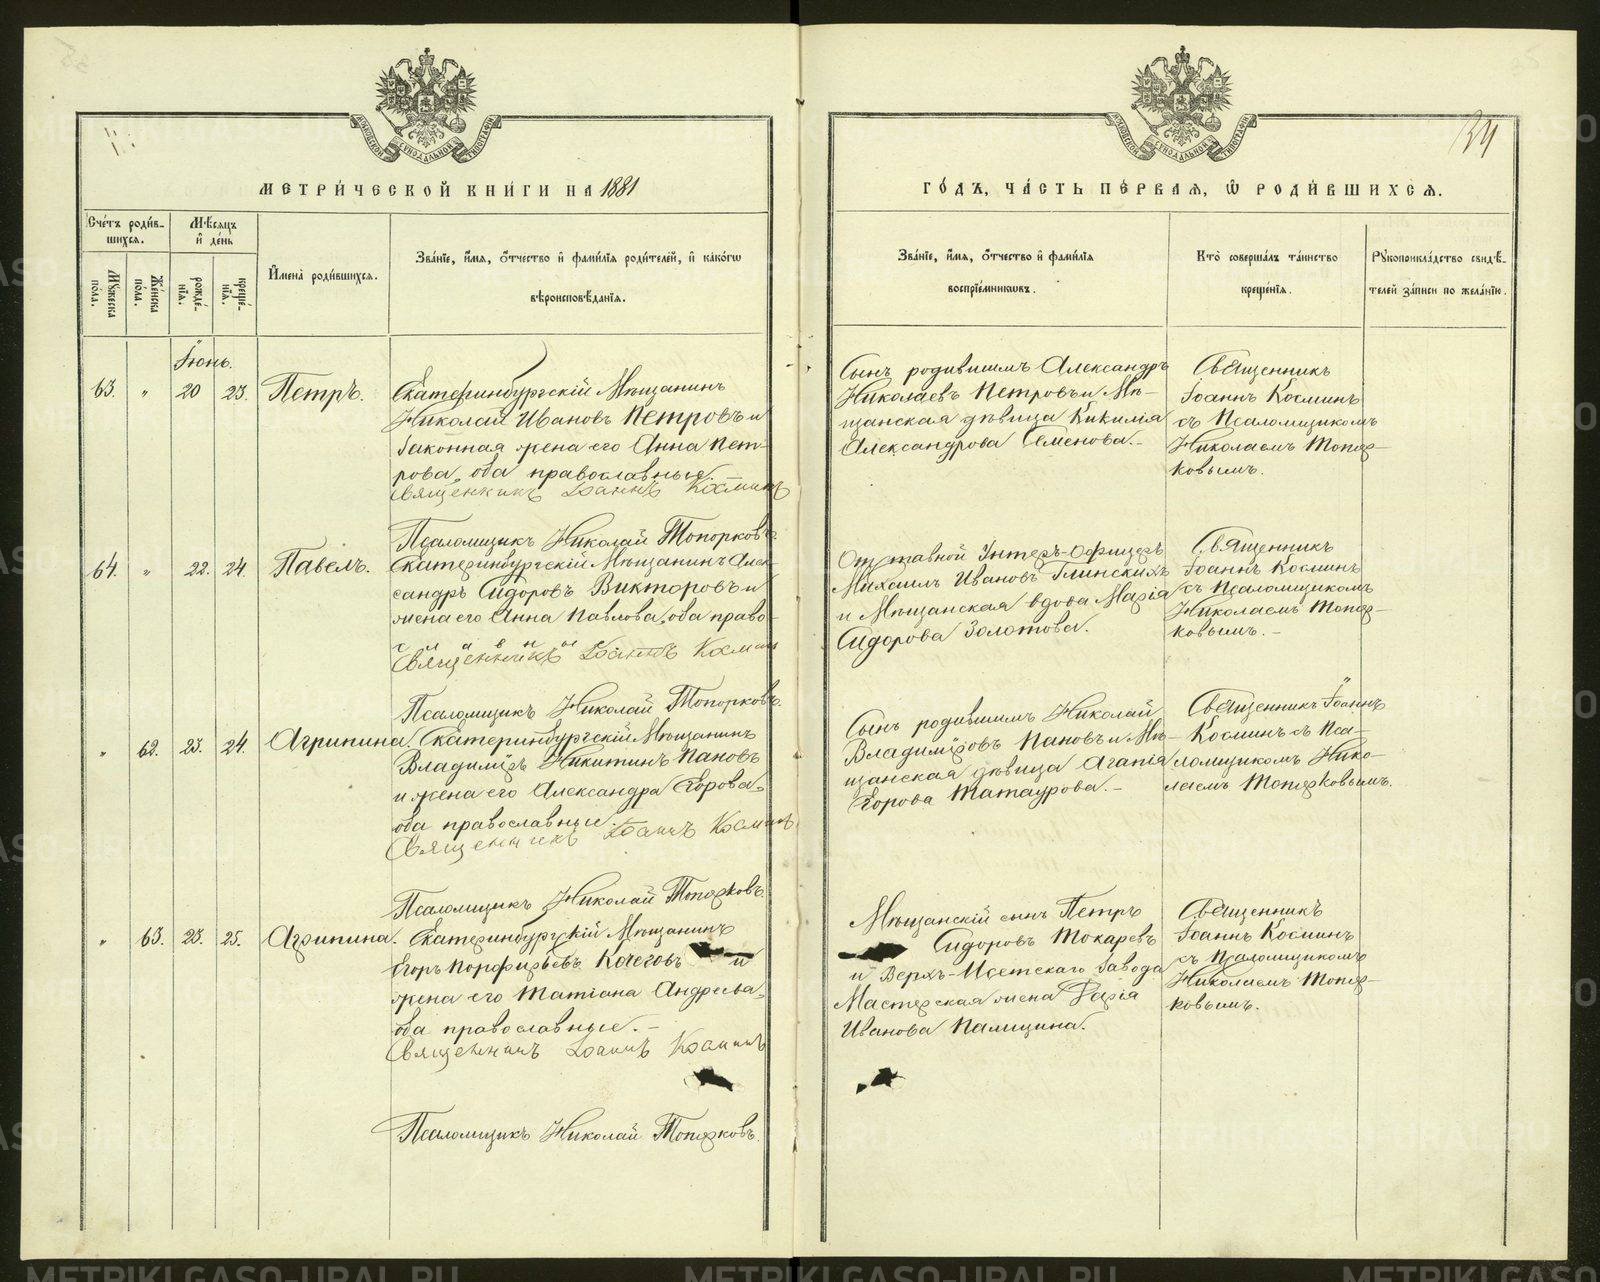 МЕТРИЧЕСКОЙ КНИГИ НА 1881
Счетъ родив-
шихся.
Мѣсяцъ
и день
Мужеска
пола.
Женска
пола.
рожде-
нія.
креще-
нія.
Имена родившихся.
Званіе, имя, отчество и фамилія родителей, и какого
вѣроисповѣданія.
Іюнь.
63. „ 20 23. Петръ.
Екатеринбургскій Мѣщанинъ
Николай Ивановъ Петровъ и
законная жена его Анна Пет-
рова, оба православные.
Священникъ Іоаннъ Косминъ
Псаломщикъ Николай Топорковъ
64. „ 22. 24. Павелъ.
Екатеринбургскій Мѣщанинъ Алек-
сандръ Сидоровъ Викторовъ и
жена его Анна Павлова, оба право-
славны
Священникъ Іоаннъ Космин
Псаломщикъ Николай Топорковъ.
„ 62. 23. 24. Агрипина.
Екатеринбургскій Мѣщанинъ
Владимиръ Никитинъ Пановъ
и жена его Александра Егорова,
оба православные.
Священникъ Іоаннъ Косминъ
Псаломщикъ Николай Топорковъ.
„ 63. 23. 25. Агрипина.
Екатеринбургскій Мѣщанинъ
Егоръ Порфирьевъ и
жена его Татіана Андреева,
оба православные.-
Священникъ Іоаннъ Косминъ
Псаломщикъ Николай Топорковъ.
34
ГОДЪ, ЧАСТЬ ПЕРВАЯ, Ѿ РОДИВШИХСЯ.
Званіе, имя, отчество и фамилія
воспріемниковъ.
Кто совершалъ таинство
крещенія.
Рукоприкладство свидѣ-
телей записи по желанію.
Сынъ родившимъ Александръ
Николаевъ Петровъ и Мѣ-
щанская дѣвица Кикилія
Александрова Семенова.-
Священникъ
Іоаннъ Косминъ
съ Псаломщикомъ
Николаемъ Топор-
ковымъ.
Отставной Унтеръ-Офицеръ
Михаилъ Ивановъ Глинскихъ
и Мѣщанская вдова Марія
Сидорова Золотова.
Священникъ
Іоаннъ Косминъ
съ Псаломщикомъ
Николаемъ Топор-
ковымъ.-
Сынъ родившимъ Николай
Владимировъ Пановъ и Мѣ-
щанская дѣвица Агапія
Егорова Татаурова.-
Священникъ Іоаннъ
Косминъ съ Пса-
ломщикомъ Нико-
лаемъ Топорковымъ.
Мѣщанскій сынъ Петръ
Сидоровъ Токаревъ
и Верхъ-Исетскаго Завода
Мастерская жена Дарія
Иванова Палицина.
Священникъ
Іоаннъ Косминъ
съ Псаломщикомъ
Николаемъ Топор-
ковымъ.
METRIKI.GASO-URAL.RU